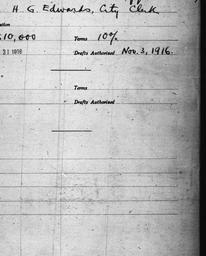 H. G. Edwards, City Clerk
10,000 Terms 10%
31 1916 Drafts Authorized Nov. 3, 1916.
Terms
Drafts Authorized